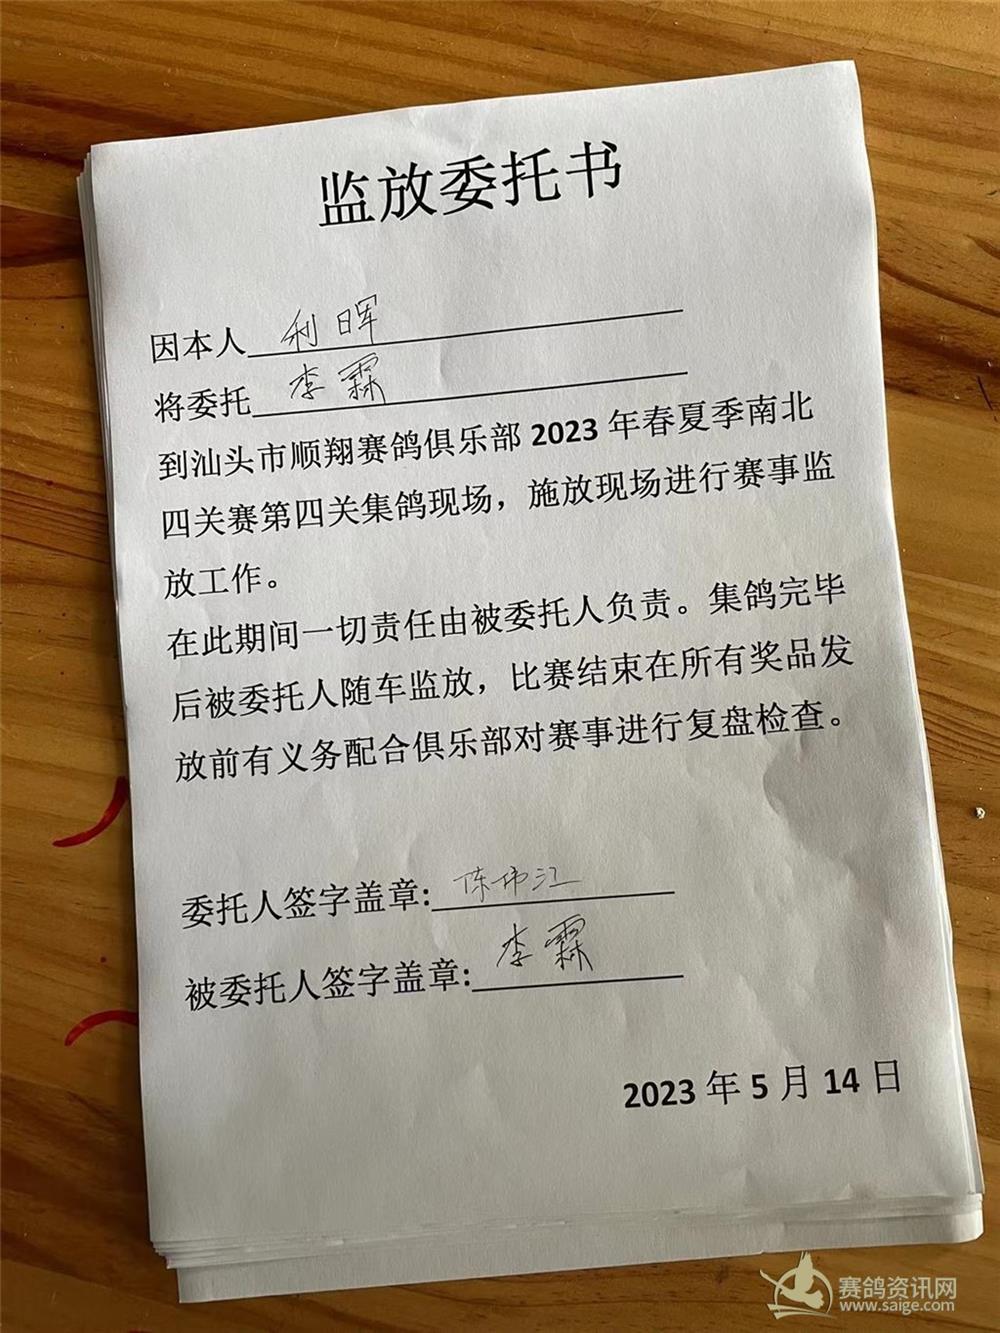 监放委托书
因本人 利晖
将委托 李霖
到汕头市顺翔赛鸽俱乐部 2023 年春夏季南北
四关赛第四关集鸽现场，施放现场进行赛事监
放工作。
在此期间一切责任由被委托人负责。集鸽完毕
后被委托人随车监放，比赛结束在所有奖品发
放前有义务配合俱乐部对赛事进行复盘检查。
委托人签字盖章: 陈伟江
被委托人签字盖章: 李霖
2023 年 5 月 14 日
赛鸽资讯网
www.saige.com